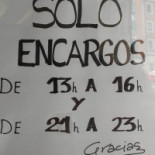 SOLO
ENCARGOS
DE 13h A 16h
Y
DE 21h A 23h
Gracias